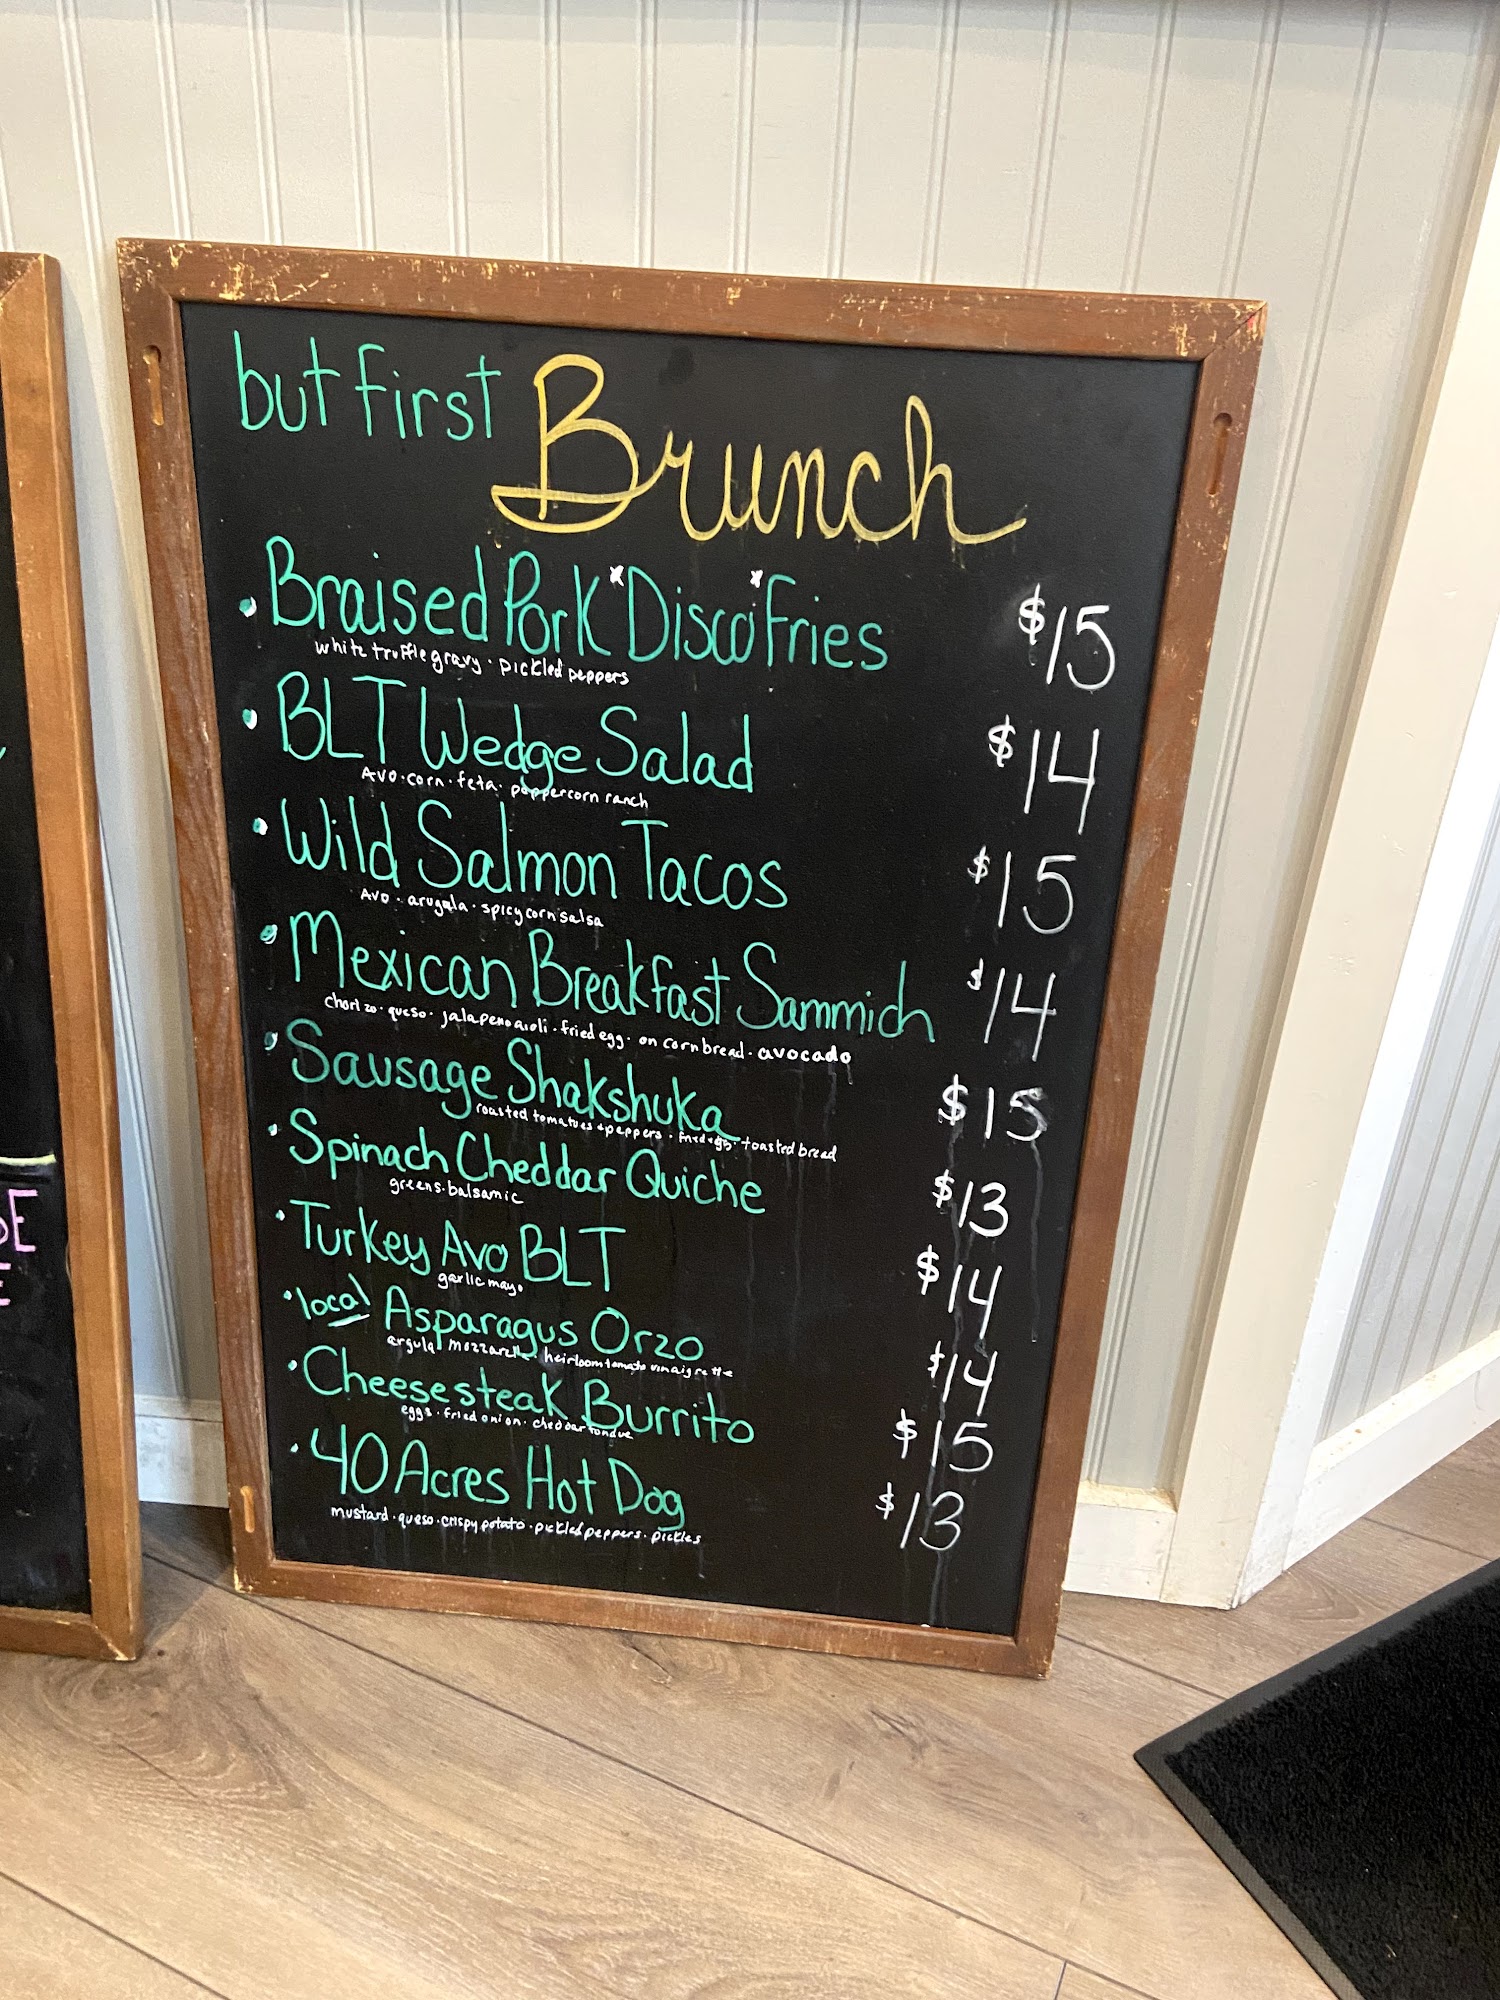 but first Brunch
• Braised Pork "Disco" Fries $15
white truffle gravy · pickled peppers
• BLT Wedge Salad $14
Avo · corn · feta · peppercorn ranch
• Wild Salmon Tacos $15
Avo · arugula · spicy corn salsa
• Mexican Breakfast Sammich $14
chorizo · queso · jalapeno aioli · fried egg · on cornbread · avocado
• Sausage Shakshuka $15
roasted tomatoes + peppers · fried egg · toasted bread
• Spinach Cheddar Quiche $13
greens · balsamic
• Turkey Avo BLT $14
garlic mayo
• local Asparagus Orzo $14
argula mozzarella · heirloom tomato vinaigrette
• Cheesesteak Burrito $15
eggs · fried onion · cheddar fondue
• 40 Acres Hot Dog $13
mustard · queso · crispy potato · pickled peppers · pickles